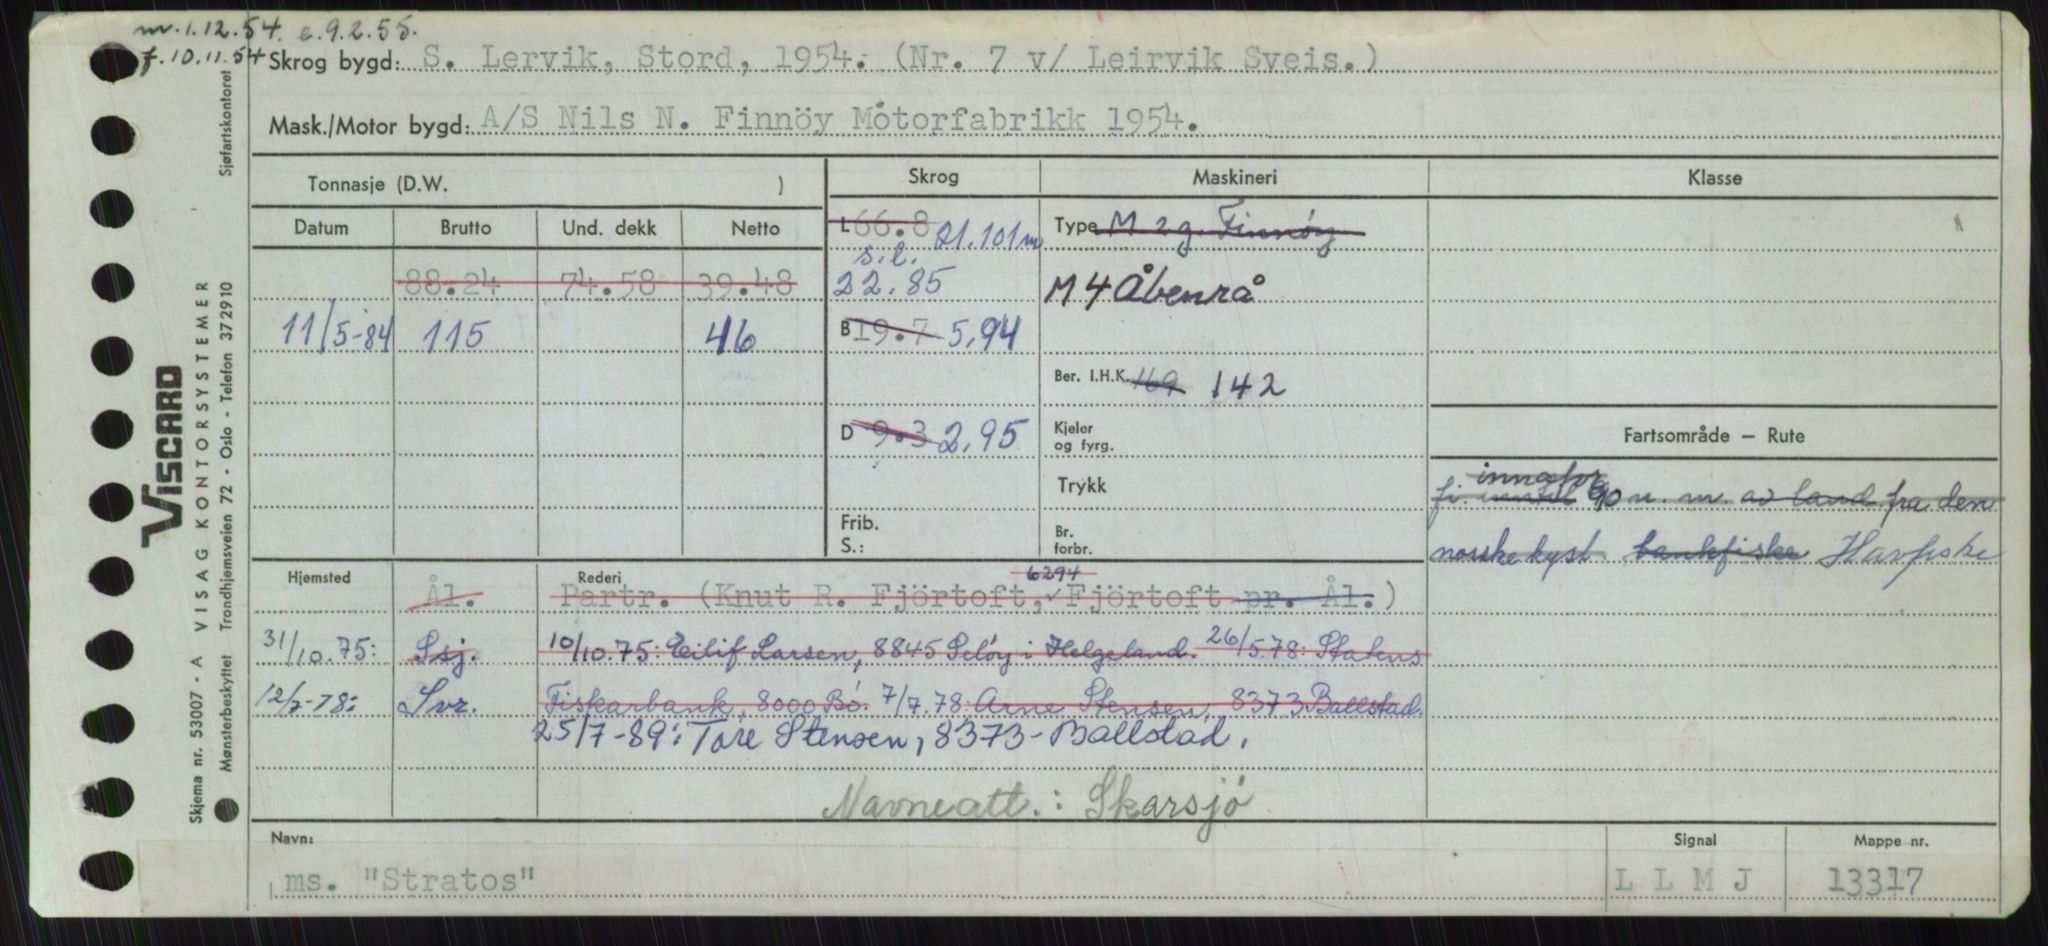 m. 1.12.54. e. 9.2.55.
f. 10.11.54
Skrog bygd: S. Lervik, Stord, 1954. (Nr. 7 v/ Leirvik Sveis.)
Mask./Motor bygd: A/S Nils N. Finnöy Motorfabrikk 1954.
Tonnasje (D.W. ) Skrog Maskineri Klasse
Datum Brutto Und. dekk Netto L 66.8 21.101 m Type M 2 g. Finnöy
s.l.
88.24 74.58 39.48 22.85 M 4 Åbenrå
11/5-84 115 46 B 19.7 5,94
Ber. I.H.K. 169 142
D 9.3 2,95 Kjeler
og fyrg. Fartsområde – Rute
Trykk innafor
fi. 90 n. m. av land fra den
Frib.
S.: Br.
forbr. norske kyst bankfiske Havfiske
Hjemsted Rederi 6294
Ål. Partr. (Knut R. Fjörtoft, Fjörtoft pr. Ål.)
31/10.75: Ssj. 10/10.75: Eilif Larsen, 8845 Seløy i Helgeland. 26/5.78: Statens
12/7-78: Svr. Fiskarbank, 8000 Bö. 7/7.78: Arne Stensen, 8373 Ballstad.
25/7-89: Tore Stensen, 8373-Ballstad.
Navneatt.: Skarsjö
Navn: Signal Mappe nr.
ms. "Stratos" L L M J 13317
Sjøfartskontoret
VISCARD
VISAG KONTORSYSTEMER
Skjema nr. 53007 - A
Mønsterbeskyttet Trondhjemsveien 72 - Oslo - Telefon 37 29 10